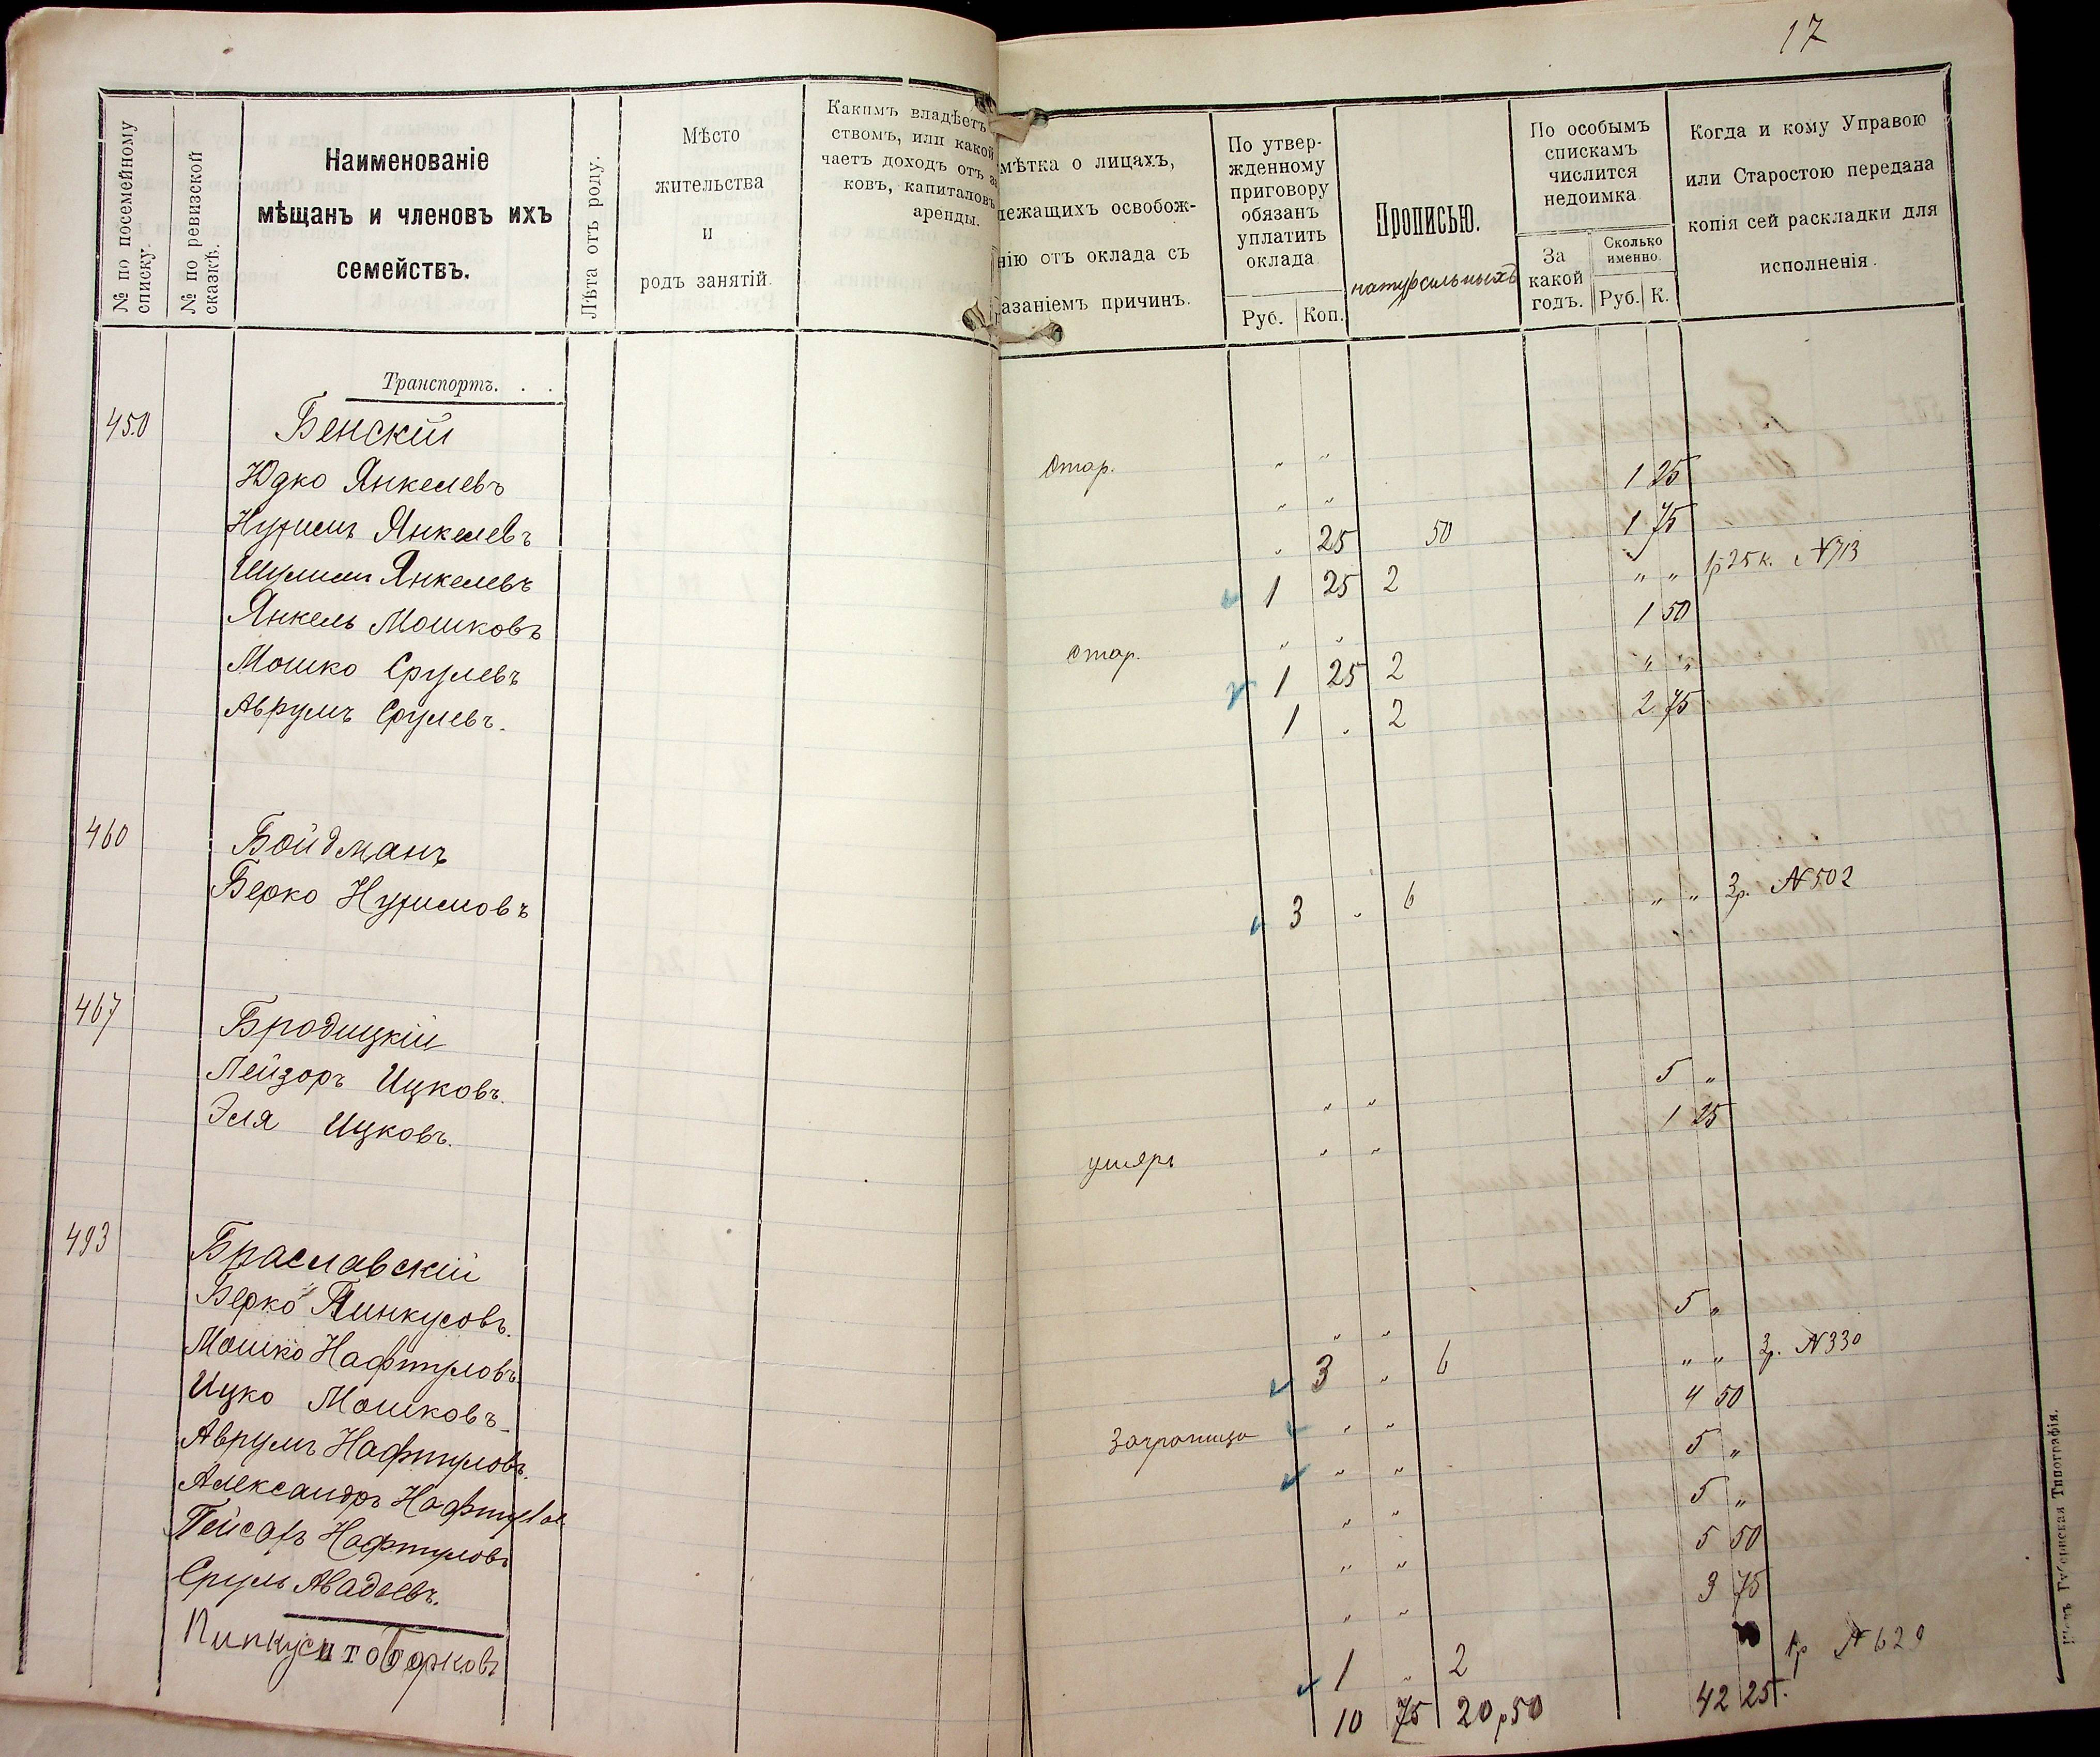 17
№ по посемейному списку.
№ по ревизской сказкѣ.
Наименованіе
мѣщанъ и членовъ ихъ
семействъ.
Лѣта отъ роду.
Мѣсто
жительства
и
родъ занятій.
Какимъ владѣетъ
ствомъ, или какой
чаетъ доходъ отъ за
ковъ, капиталовъ
аренды.
мѣтка о лицахъ,
лежащихъ освобож-
нію отъ оклада съ
азаніемъ причинъ.
По утвер-
жденному
приговору
обязанъ
уплатить
оклада
Руб. Коп.
Прописью.
натуральныхъ
По особымъ
спискамъ
числится
недоимка
За
какой
годъ.
Сколько
именно.
Руб. К.
Когда и кому Управою
или Старостою передана
копія сей раскладки для
исполненія.
Транспортъ. . .
450 Бенскій
Юдко Янкелевъ Стар. " " 1 25
Нухимъ Янкелевъ " " 1 75
Шулим Янкелевъ " 25 50 " " 1р 25 к. № 713
Янкель Мошковъ 1 25 2 1 50
Мошко Срулевъ Стар. " " " "
Аврумъ Срулевъ. 1 25 2 2 75
1 " 2
460 Бойдманъ
Берко Нухимовъ 3 " 6 " " 3р. № 502
467 Бродицкій
Лейзоръ Ицковъ. " " 5 "
Эля Ицковъ. умеръ " " 1 25
493 Браславскій
Берко Пинкусовъ. " " 5 "
Мошко Нафтуловъ. 3 " 6 " " 3р. № 330
Ицко Мошковъ Заграницо " " 4 50
Аврумъ Нафтуловъ. " " 5 "
Александръ Нафтулов " " 5 "
Лейсоръ Нафтуловъ " " 5 50
Сруль Авадіевъ. " " 3 75
Пинкус Берковъ 1 " 2 1р № 629
Итого 10 75 20р50 42 25.
Губернская Типографія.